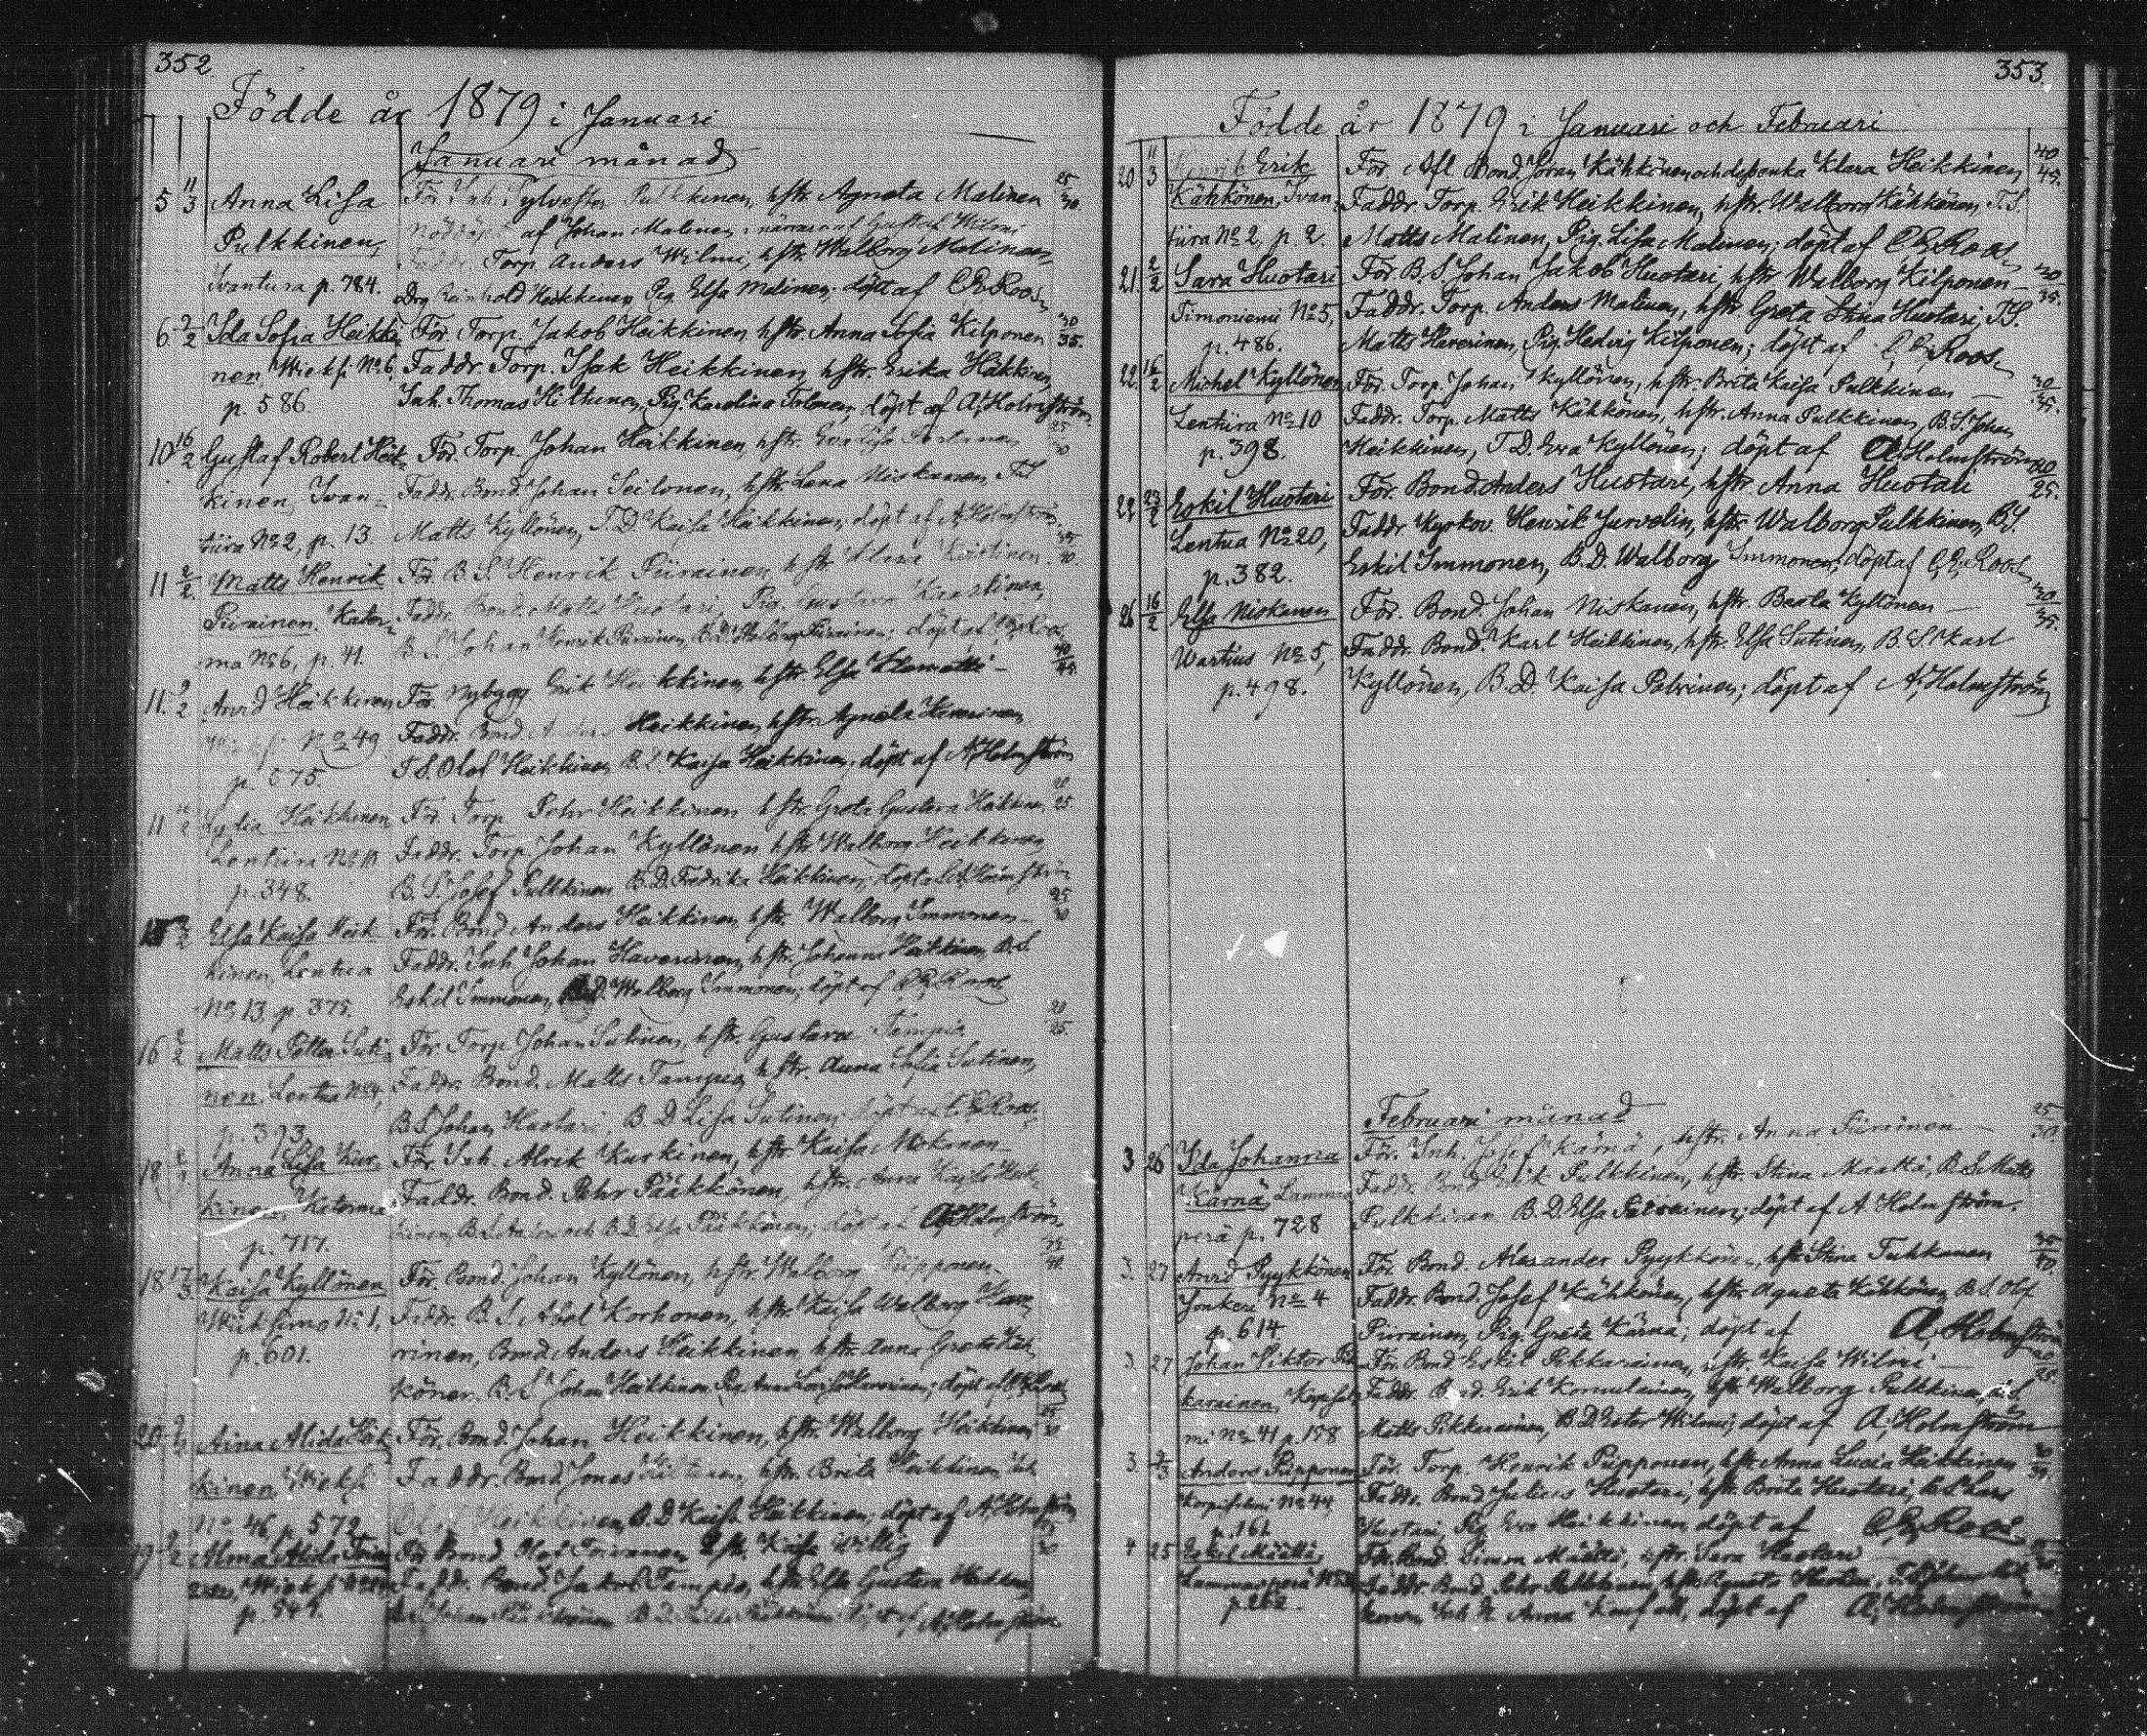 352
Födde år 1879 i Januari
Januari månad
5 11/3 Anna Lisa För. Inh. Sylvester Pulkkinen, hstr. Agneta Malinen 25/30
Pulkkinen, af Johan Malinen i närvaro af Gustaf Wilmi
Torp. Anders Wilmi, hstr. Walborg Malinen,
Ivantiira p. 784. Drg Reinhold Heikkinen Pig. Elsa Malinen; döpt af C. E. Roos
6 2/2 Ida Sofia Heikki- För. Torp. Jakob Heikkinen hstr. Anna Sofia Kilponen 30/35.
nen, Wieksi No 6, Faddr. Torp. Isak Heikkinen, hstr. Erika Häkkinen,
p. 586. Inh. Thomas Hiltunen, Pig. Karolina Tolonen, döpt af A. Holmström
10 16/2 Gustaf Robert Heik- För. Torp. Johan Heikkinen, hstr. Eva Lisa 25/30
kinen, Ivan- Faddr. Bond. Johan Seilonen, hstr. Lena Niskanen, T.S.
tiira No 2, p. 13. Matts Kyllönen, T.D. Kaisa Heikkinen, döpt af A. Holmström
11 2/2 Matts Henrik För. B.S. Henrik Piirainen, hstr. Klara 35/40.
Piirainen. Kator- Faddr. Bond. Matts Huotari, Pig. Gustava
ma No 6, p. 41. B.S. Johan Henrik Piirainen, B.D. Walborg Piirainen; döpt af C. E. Roos
11. 9/2 Arvid Heikkinen För. Nybygg. Erik Heikkinen, hstr. Elsa Klemetti – 40/45.
No 49 Faddr. Bond. Heikkinen, hstr. Agneta Haverinen
p. 575. T.S. Olof Heikkinen B.D. Kaisa Heikkinen; döpt af A. Holmström
11 Lydia Heikkinen För. Torp. Pehr Heikkinen hstr. Greta Gustava Heikkinen 20/25
Lentiira No 10 Faddr. Torp. Johan Kyllönen hstr. Walborg Heikkinen
p. 348. B.S. Josef Pulkkinen B.D. Fredrika Heikkinen; döpt af A. Holmström
15 2/2 Elsa Kaisa Heik- För. Bond. Anders Heikkinen, hstr. Walborg Immonen – 25/30
kinen, Lentua Faddr. Inh. Johan Haverinen, hstr. Johanna Heikkinen, B.S.
No 13, p. 375. Eskil Immonen, B.D. Walborg Immonen; döpt af C. E. Roos
16 2/2 Matts Petter Suti- För. Torp. Johan Sutinen, hstr. Gustava Tempia 20/25.
nen. Lentua No 4, Faddr. Bond. Matts Tampia, hstr. Anna Sofia Sutinen,
p. 393. B.S. Johan Huotari, B.D. Lisa Sutinen; döpt af C. E. Roos
18 Anna Lisa Kur- För. Inh. Alrik Kurkinen, hstr. Kaisa Mokonen –
kinen, Katorma Faddr. Bond. Pehr Pääkkönen, hstr. Anna Kaisa Heik-
p. 717. kinen, B.S. Anders och B.D. Elsa Pääkkönen; döpt af A. Holmström
18 17/3 Kaisa Kyllönen För. Bond. Johan Kyllönen, hstr. Walborg Piipponen – 35/40.
Wiiksimo No 1, Faddr. B.S. Abel Korhonen, hstr. Kaisa Walborg
p. 601. rinen, Bond. Anders Heikkinen, hstr. Anna Greta Käh-
könen. B.S. Johan Heikkinen, Pig. Anna Lovisa Haverinen; döpt af C. E. Roos
20 Aina Alida Heik- För. Bond. Johan Heikkinen, hstr. Walborg Heikkinen
kinen, Wieksi Faddr. Bond. Jonas hstr. Brita Heikkinen Inh.
No 46 p. 572 Heikkinen, B.D. Kaisa Heikkinen; döpt af A. Holmström
19 Alma Alida Toiva- För. Bond. Olof Toivanen, hstr. Kaisa Willig
nen, Faddr. Bond. Jakob Tampio, hstr. Elsa Gustava
B.D. döpt af A. Holmström
353.
Födde år 1879 i Januari och Februari
20 11/3 Henrik Erik För. Afl. Bond. Jöran Kähkönen och dess enka Klara Heikkinen, 40/45.
Kähkönen, Ivan- Faddr. Torp. Erik Heikkinen, hstr. Walborg Kähkönen, T.S.
tiira No 2, p. 2. Matts Malinen, Pig. Lisa Malinen; döpt af C. E. Roos
21. 2/2 Sara Huotari För. B.S. Johan Jakob Huotari, hstr. Walborg Kilponen – 30/35.
Timoniemi No 5, Faddr. Torp. Anders Malinen, hstr. Greta Stina Huotari, T.S.
p. 486. Matts Haverinen, Pig. Hedvig Kilponen; döpt af C. E. Roos
22. 16/2 Michel Kyllönen För. Torp. Johan Kyllönen, hstr. Brita Kaisa Pulkkinen – 30/35.
Lentiira No 10 Faddr. Torp. Matts Kähkönen, hstr. Anna Pulkkinen, B.S. Johan
p. 398. Heikkinen, T.D. Eva Kyllönen; döpt af A. Holmström
22. 23/2 Eskil Huotari För. Bond. Anders Huotari, hstr. Anna Huotari 20/25.
Lentua No 20, Faddr. Kyrkov. Henrik Jurvelin, hstr. Walborg Pulkkinen, B.S.
p. 382. Eskil Immonen, B.D. Walborg Immonen; döpt af C. E. Roos
26 16/2 Elsa Niskanen För. Bond. Johan Niskanen, hstr. Beata Kyllönen – 30/35.
Wartius No 5, Faddr. Bond. Karl Heikkinen, hstr. Elsa Sutinen, B.S. Karl
p. 498. Kyllönen, B.D. Kaisa Polvinen; döpt af A. Holmström
Februari månad
3 26 Ida Johanna För. Inh. Josef Kärnä, hstr. Anna Piirainen – 25/30.
Kärnä, Lammas- Faddr. Bond. Erik Pulkkinen, hstr. Stina Määttä, B.S. Matts
perä p. 728 Pulkkinen B.D. Elsa Piirainen; döpt af A. Holmström.
3. 27 Arvid Pyykkönen För. Bond. Alexander Pyykkönen, hstr. Stina Tuhkanen 35/40.
Jonkeri No 4 Faddr. Bond. Josef Kähkönen, hstr. Agneta Kähkönen B.S. Olof
p. 614. Piirainen, Pig. Greta Kärnä; döpt af A. Holmström
3. 27 Johan Viktor Pik- För. Bond. Eskil Pikkarainen, hstr. Kaisa Wilmi – 20/25.
karainen, Korpisal- Faddr. Bond. Erik Kornulainen, hstr. Walborg Pulkkinen,
mi No 41 p. 158 Matts Pikkarainen, B.D. Ester Wilmi; döpt af A. Holmström
3. 2/3 Anders Piipponen För. Torp. Henrik Piipponen, hstr. Anna Lucia Heikkinen
Korpisalmi No 44, Faddr. Bond. Julius Huotari, hstr. Brita Huotari, B.S. Lars
p. 161. Huotari, Pig. Eva Heikkinen, döpt af C. E. Roos
4 25 Eskil Määttä, För. Bond. Simon Määttä, hstr. Sara Huotari –
Lammasperä Faddr. Bond. Pehr Pulkkinen, hstr. Agneta Huotari,
p. 262. Anna döpt af A. Holmström